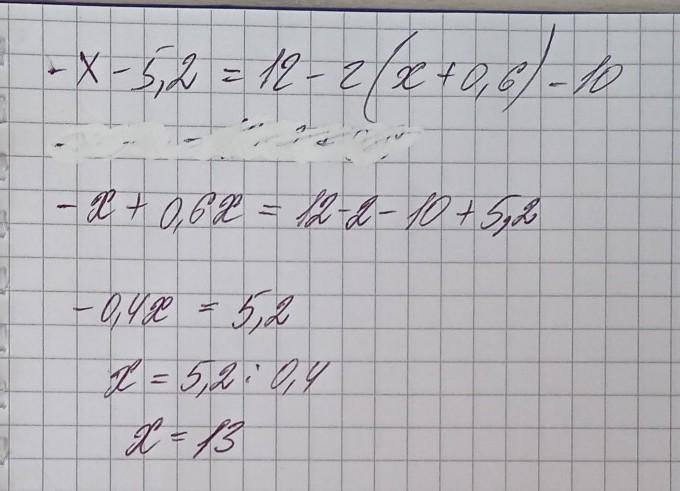 -x-5,2 = 12-2(x+0,6)-10
-x+0,6x = 12-2-10+5,2
-0,4x = 5,2
x = 5,2 : 0,4
x = 13